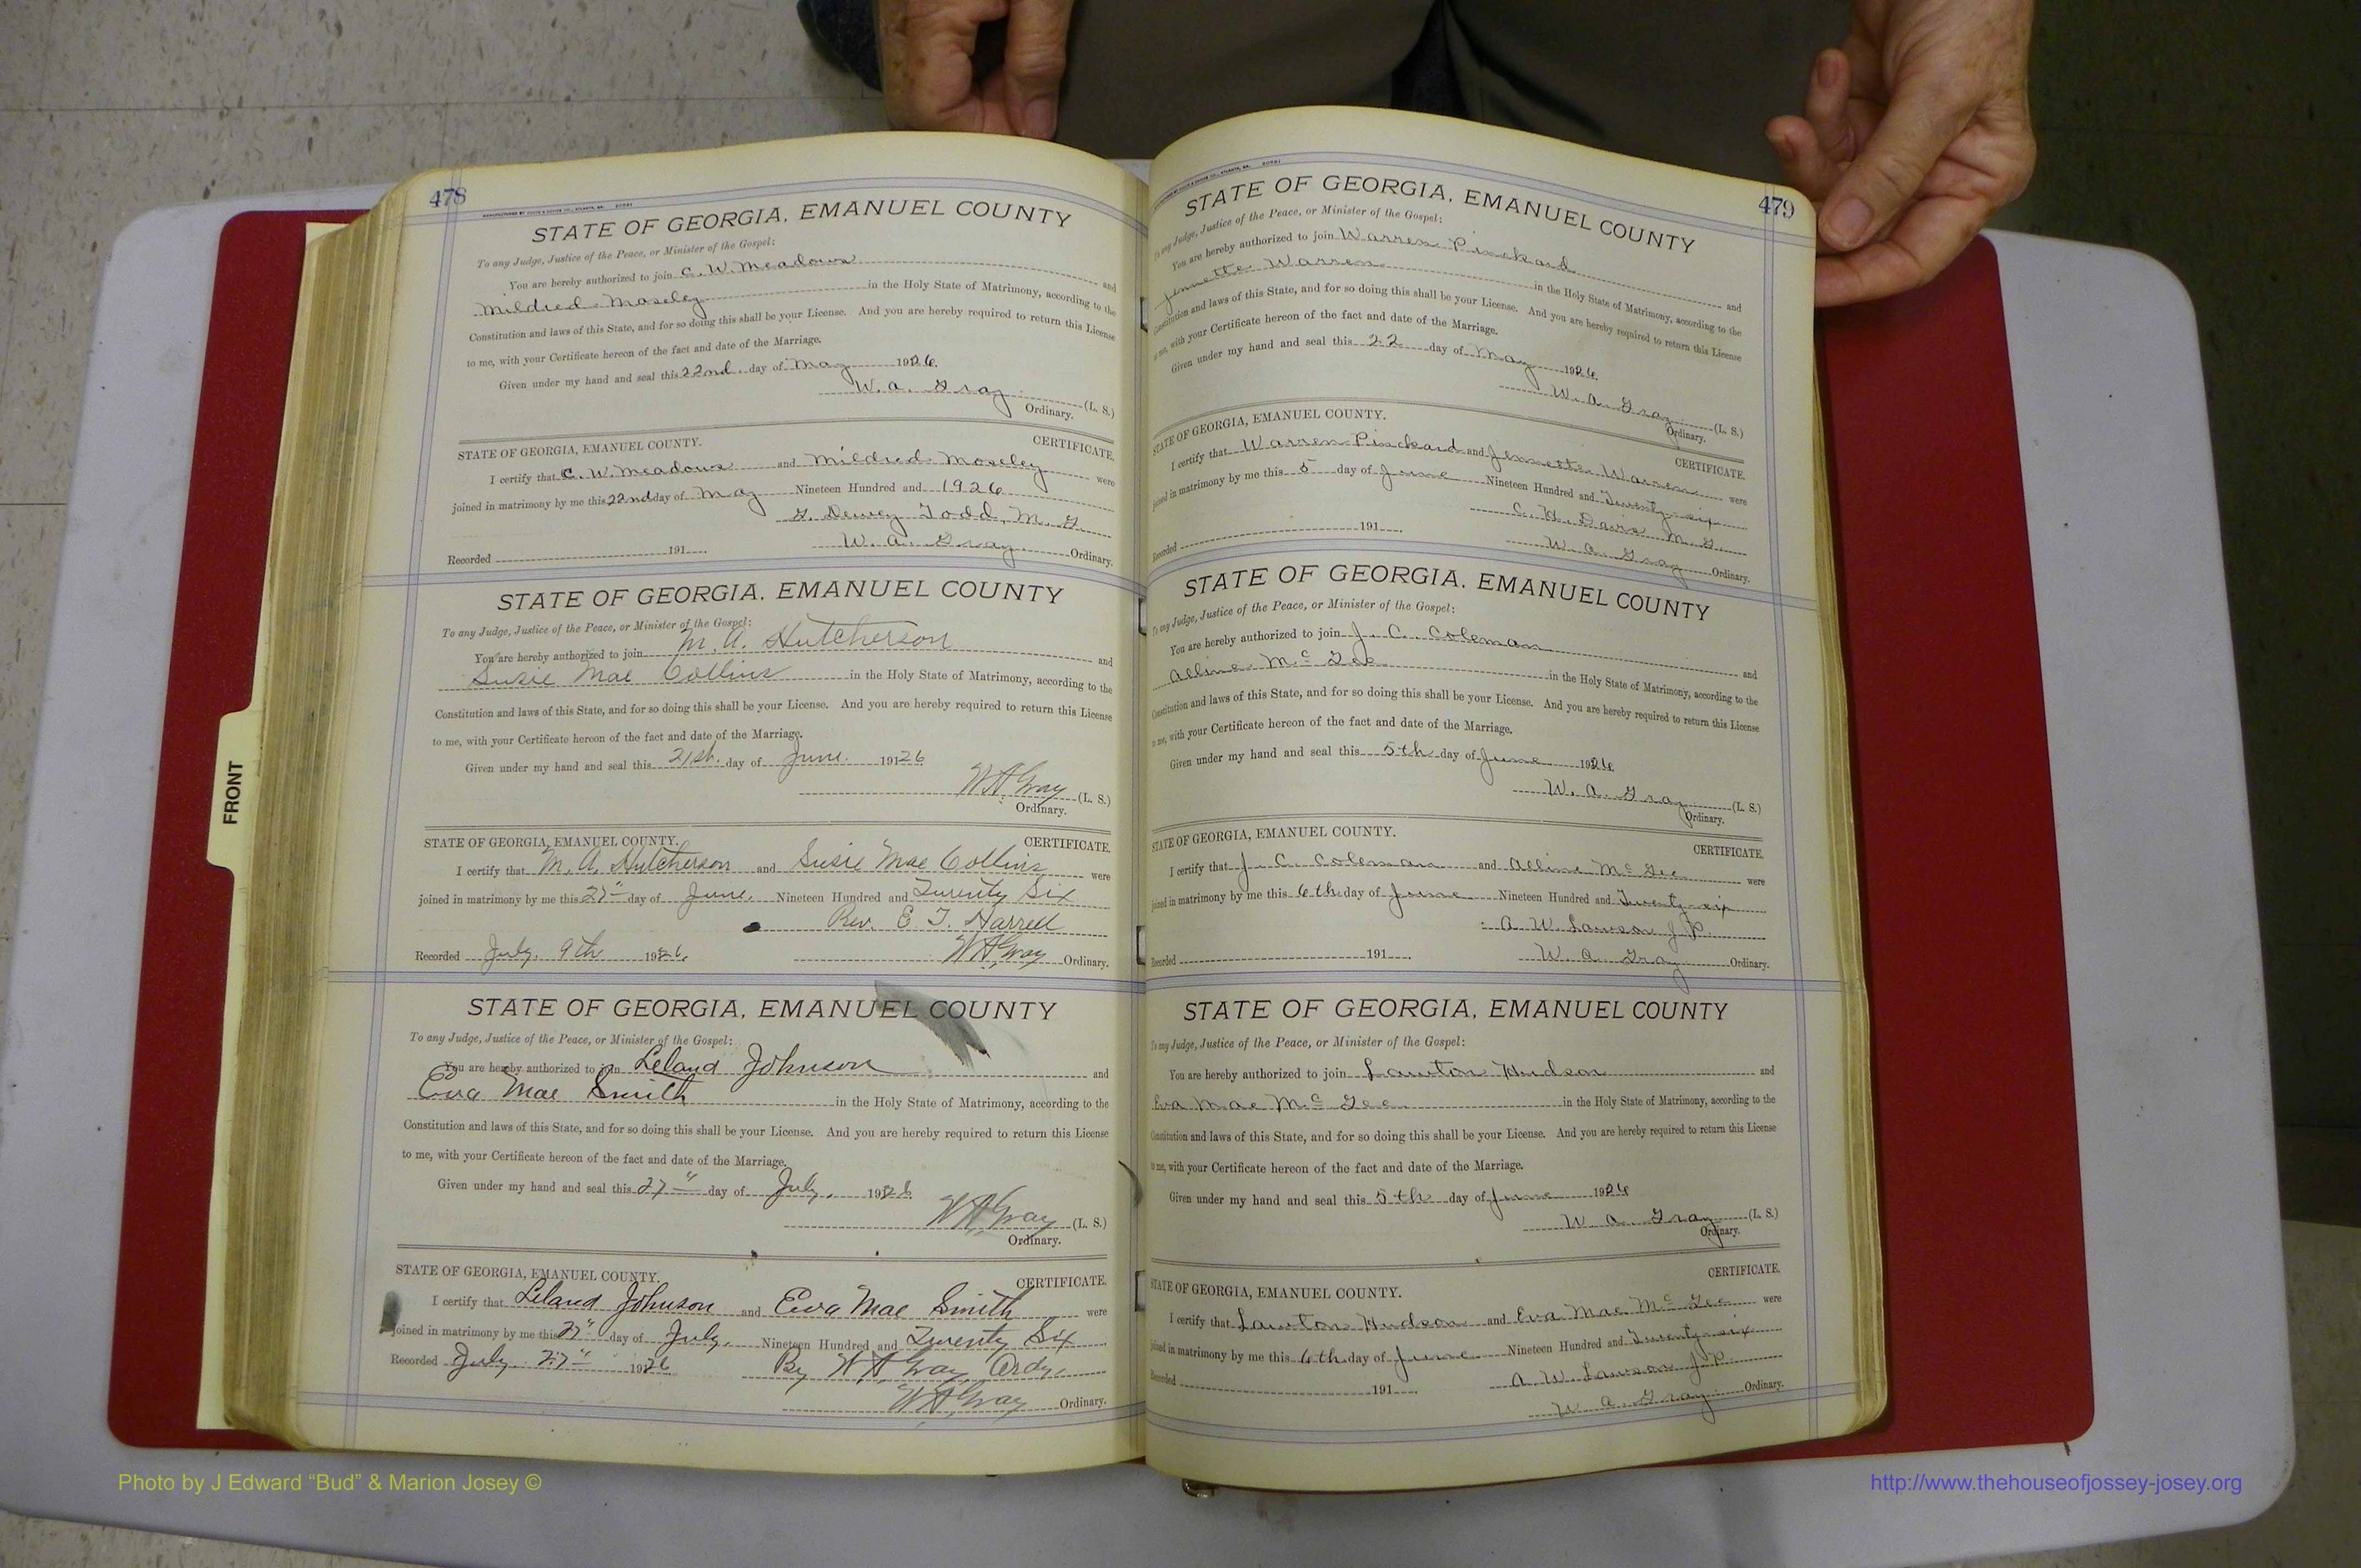 478
STATE OF GEORGIA, EMANUEL COUNTY
To any Judge, Justice of the Peace, or Minister of the Gospel:
You are hereby authorized to join C. W. Meadows and
Mildred Moseley in the Holy State of Matrimony, according to the
Constitution and laws of this State, and for so doing this shall be your License. And you are hereby required to return this License
to me, with your Certificate hereon of the fact and date of the Marriage.
Given under my hand and seal this 22nd day of May 1926.
W. A. Gray (L. S.)
Ordinary.
STATE OF GEORGIA, EMANUEL COUNTY. CERTIFICATE.
I certify that C. W. Meadows and Mildred Moseley were
joined in matrimony by me this 22nd day of May Nineteen Hundred and 1926
G. Dewey Todd, M. G.
Recorded 191 W. A. Gray Ordinary.
STATE OF GEORGIA, EMANUEL COUNTY
To any Judge, Justice of the Peace, or Minister of the Gospel:
You are hereby authorized to join M. A. Hutcherson and
Susie Mae Collins in the Holy State of Matrimony, according to the
Constitution and laws of this State, and for so doing this shall be your License. And you are hereby required to return this License
to me, with your Certificate hereon of the fact and date of the Marriage.
Given under my hand and seal this 21st. day of June. 19126
W A Gray (L. S.)
Ordinary.
STATE OF GEORGIA, EMANUEL COUNTY. CERTIFICATE.
I certify that M. A. Hutcherson and Susie Mae Collins were
joined in matrimony by me this 27" day of June. Nineteen Hundred and Twenty Six
Rev. E. T. Harrell
Recorded July. 9th 1926. W A Gray Ordinary.
STATE OF GEORGIA, EMANUEL COUNTY
To any Judge, Justice of the Peace, or Minister of the Gospel:
You are hereby authorized to join Leland Johnson and
Eva Mae Smith in the Holy State of Matrimony, according to the
Constitution and laws of this State, and for so doing this shall be your License. And you are hereby required to return this License
to me, with your Certificate hereon of the fact and date of the Marriage.
Given under my hand and seal this 27" day of July. 1926
W A Gray (L. S.)
Ordinary.
STATE OF GEORGIA, EMANUEL COUNTY. CERTIFICATE.
I certify that Leland Johnson and Eva Mae Smith were
joined in matrimony by me this 27" day of July. Nineteen Hundred and Twenty Six
Recorded July. 27" 1926 By W A Gray Ordy.
W A Gray Ordinary.
479
STATE OF GEORGIA, EMANUEL COUNTY
To any Judge, Justice of the Peace, or Minister of the Gospel:
You are hereby authorized to join Warren Pinckard and
Jennette Warren in the Holy State of Matrimony, according to the
Constitution and laws of this State, and for so doing this shall be your License. And you are hereby required to return this License
to me, with your Certificate hereon of the fact and date of the Marriage.
Given under my hand and seal this 22 day of May 1926.
W. A. Gray (L. S.)
Ordinary.
STATE OF GEORGIA, EMANUEL COUNTY. CERTIFICATE.
I certify that Warren Pinckard and Jennette Warren were
joined in matrimony by me this 5 day of June Nineteen Hundred and Twenty-six
C. H. Davis M. G.
Recorded 191 W. A. Gray Ordinary.
STATE OF GEORGIA, EMANUEL COUNTY
To any Judge, Justice of the Peace, or Minister of the Gospel:
You are hereby authorized to join J. C. Coleman and
Alline McGee in the Holy State of Matrimony, according to the
Constitution and laws of this State, and for so doing this shall be your License. And you are hereby required to return this License
to me, with your Certificate hereon of the fact and date of the Marriage.
Given under my hand and seal this 5th day of June 1926.
W. A. Gray (L. S.)
Ordinary.
STATE OF GEORGIA, EMANUEL COUNTY. CERTIFICATE.
I certify that J. C. Coleman and Alline McGee were
joined in matrimony by me this 6th day of June Nineteen Hundred and Twenty-six
A. W. Lawson J. P.
Recorded 191 W. A. Gray Ordinary.
STATE OF GEORGIA, EMANUEL COUNTY
To any Judge, Justice of the Peace, or Minister of the Gospel:
You are hereby authorized to join Lawton Hudson and
Eva Mae McGee in the Holy State of Matrimony, according to the
Constitution and laws of this State, and for so doing this shall be your License. And you are hereby required to return this License
to me, with your Certificate hereon of the fact and date of the Marriage.
Given under my hand and seal this 5th day of June 1926
W. A. Gray (L. S.)
Ordinary.
STATE OF GEORGIA, EMANUEL COUNTY. CERTIFICATE.
I certify that Lawton Hudson and Eva Mae McGee were
joined in matrimony by me this 6th day of June Nineteen Hundred and Twenty-six
A. W. Lawson J. P.
Recorded 191 W. A. Gray Ordinary.
FRONT
Photo by J Edward “Bud” & Marion Josey ©
http://www.thehouseofjossey-josey.org